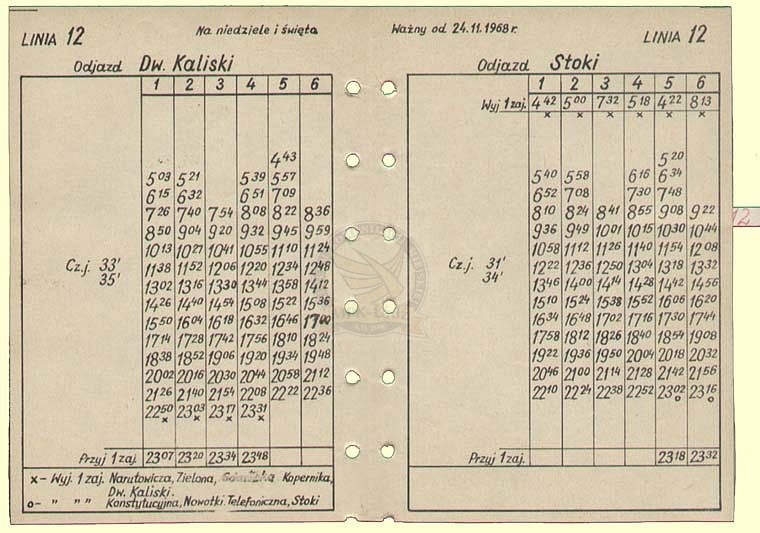 LINIA 12 Na niedziele i święta
Odjazd Dw. Kaliski
1 2 3 4 5 6
4 43
5 03 5 21 5 39 5 57
6 15 6 32 6 51 7 09
7 26 7 40 7 54 8 08 8 22 8 36
8 50 9 04 9 20 9 32 9 45 9 59
10 13 10 27 10 41 10 55 11 10 11 24
Cz.j. 33'
35'
11 38 11 52 12 06 12 20 12 34 12 48
13 02 13 16 13 30 13 44 13 58 14 12
14 26 14 40 14 54 15 08 15 22 15 36
15 50 16 04 16 18 16 32 16 46 17 00
17 14 17 28 17 42 17 56 18 10 18 24
18 38 18 52 19 06 19 20 19 34 19 48
20 02 20 16 20 30 20 44 20 58 21 12
21 26 21 40 21 54 22 08 22 22 22 36
22 50 23 03 23 17 23 31
x x x x
Przyj 1 zaj. 23 07 23 20 23 34 23 48
x- Wyj. 1 zaj. Narutowicza, Zielona, Kopernika,
Dw. Kaliski.
o- " " " Konstytucyjna, Nowotki. Telefoniczna, Stoki
Ważny od 24.11.1968 r. LINIA 12
Odjazd Stoki
1 2 3 4 5 6
Wyj 1 zaj. 4 42 5 00 7 32 5 18 4 22 8 13
x x x x x x
5 20
5 40 5 58 6 16 6 34
6 52 7 08 7 30 7 48
8 10 8 24 8 41 8 55 9 08 9 22
9 36 9 49 10 01 10 15 10 30 10 44
10 58 11 12 11 26 11 40 11 54 12 08
Cz.j. 31'
34'
12 22 12 36 12 50 13 04 13 18 13 32
13 46 14 00 14 14 14 28 14 42 14 56
15 10 15 24 15 38 15 52 16 06 16 20
16 34 16 48 17 02 17 16 17 30 17 44
17 58 18 12 18 26 18 40 18 54 19 08
19 22 19 36 19 50 20 04 20 18 20 32
20 46 21 00 21 14 21 28 21 42 21 56
22 10 22 24 22 38 22 52 23 02 23 16
o o
Przyj 1 zaj. 23 18 23 32
12